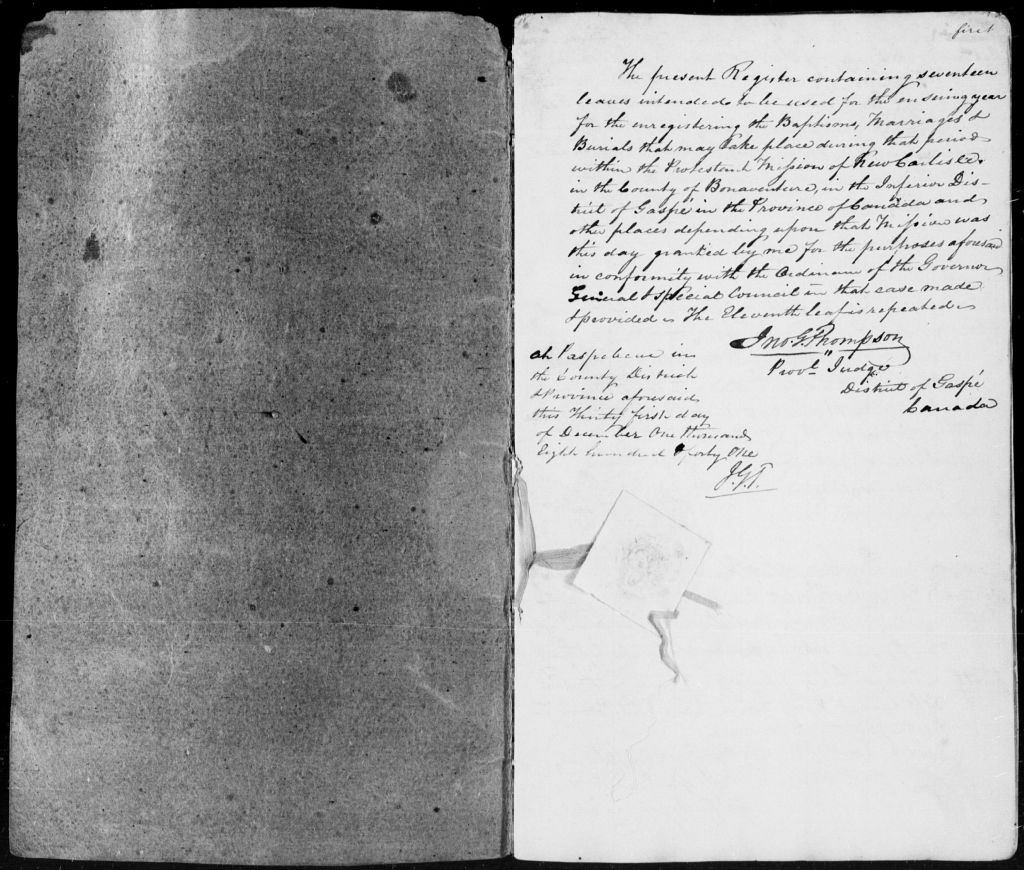 first
The present Register containing seventeen
leaves intended to be used for the ensuing year
for the enregistering the Baptisms, Marriages &
Burials that may take place during that period
within the Protestant Mission of New Carlisle,
in the County of Bonaventure, in the Inferior Dis-
trict of Gaspé in the Province of Canada and
other places depending upon that Mission was
this day granted by me for the purposes aforesaid
in conformity with the Ordinance of the Governor
General & Special Council in that case made
& provided The Eleventh leaf is repeated
Jno G. Thompson
Provl. Judge
District of Gaspé
Canada
At Paspebiac in
the County District
& Province aforesaid
this Thirty first day
of December One thousand
Eight hundred & forty One
J.G.T.